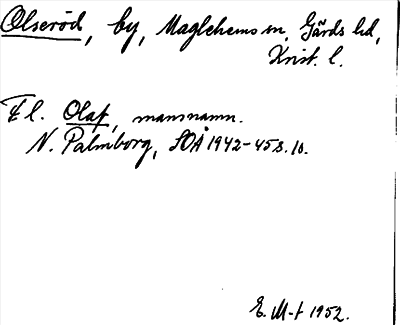 Olseröd, by, Maglehems sn, Gärds hd,
Krist. l.
Fl. Olaf, mansnamn.
N. Palmborg, SOÅ 1942-45 s. 10.
E. M-t 1952.